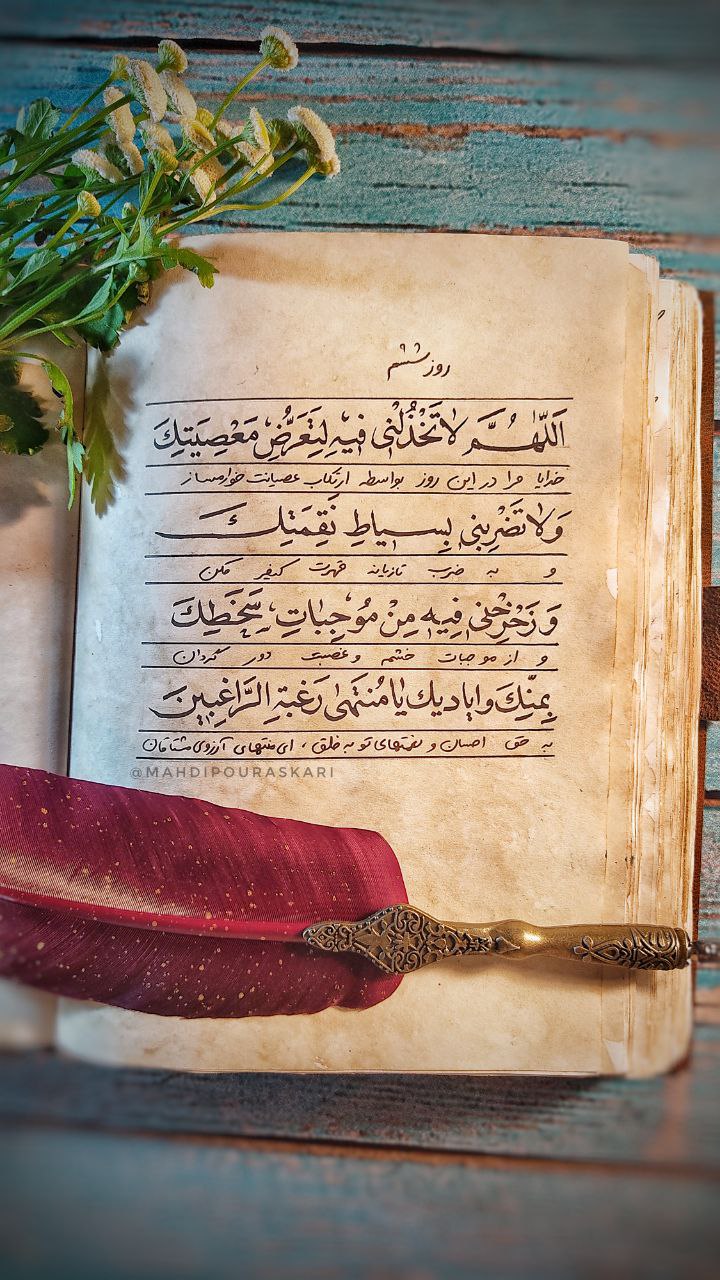 روز ششم
اَللّهُمَّ لاٰ تَخْذُلْنى فيهِ لِتَعَرُّضِ مَعْصِيَتِكَ
خدایا مرا در این روز بواسطه ارتکاب عصیانت خوار مساز
وَلاٰ تَضْرِبْنى بِسياطِ نَقِمَتِكَ
و به ضرب تازیانه قهرت کیفر مکن
وَ زَحْزِحْنى فيهِ مِنْ مُوجِباتِ سَخَطِكَ
و از موجبات خشم و غضبت دور گردان
بِمَنِّكَ وَ اَياديكَ يٰا مُنْتَهىٰ رَغْبَةِ الرّٰاغِبينَ
به حق احسان و نعمتهای تو به خلق ، ای منتهای آرزوی مشتاقان
@MAHDIPOURASKARI